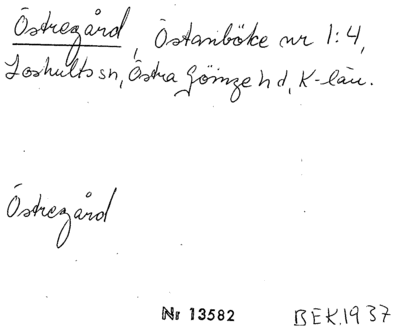 Östregård, Östanböke nr 1:4,
Loshults sn, Östra Göinge hd, K-län.
Östregård
Nr 13582 BEK.1937